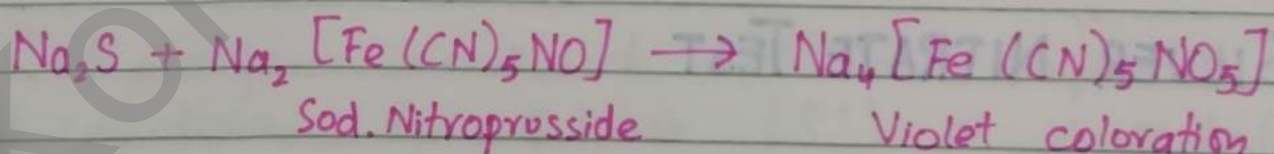 Na₂S + Na₂ [Fe (CN)₅ NO] → Na₄ [Fe (CN)₅ NO₅]
Sod. Nitroprusside Violet coloration